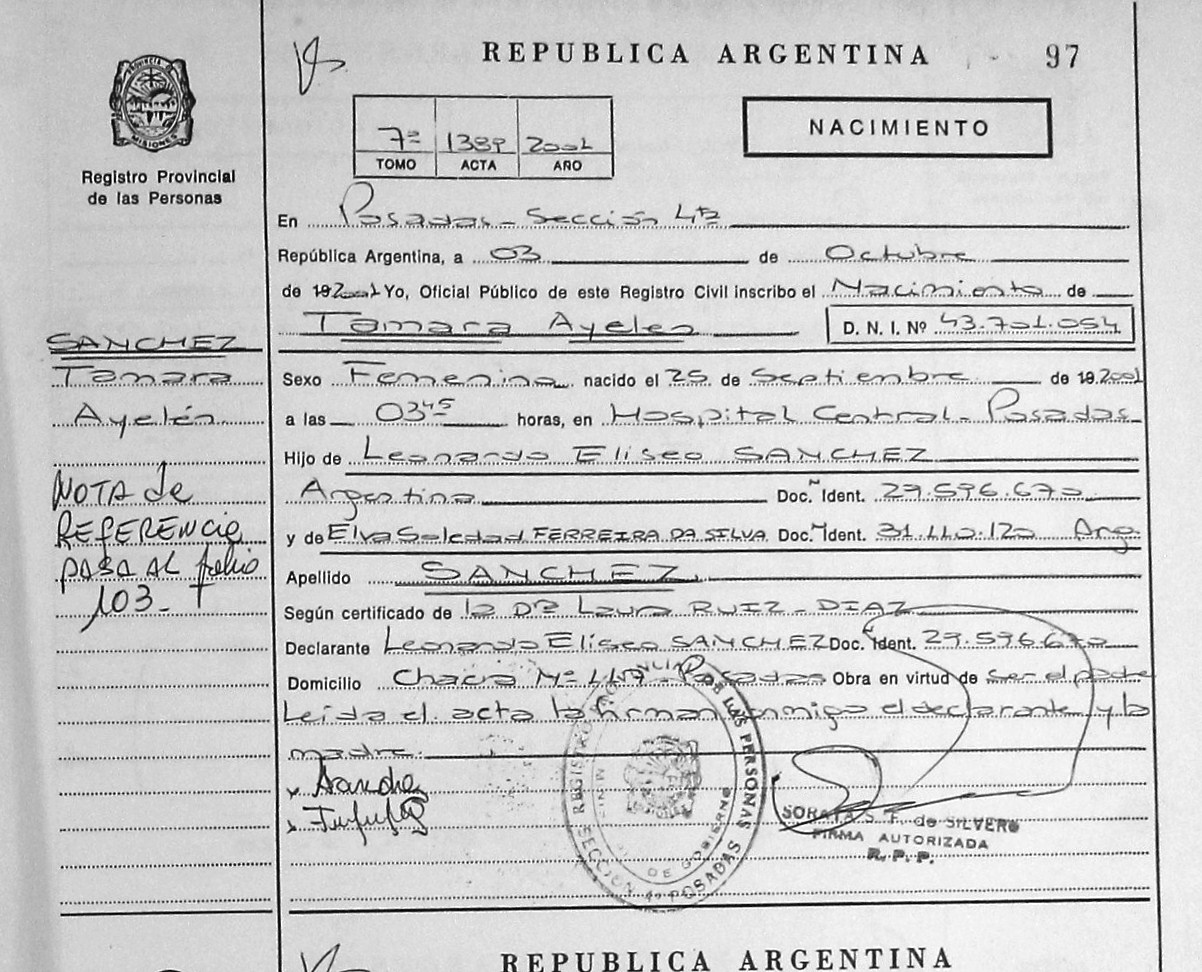 REPUBLICA ARGENTINA
97
PROVINCIA DE MISIONES
Registro Provincial
de las Personas
7º 1389 2001
TOMO ACTA AÑO
NACIMIENTO
En Posadas - Sección 4ta
República Argentina, a 03 de Octubre
de 19 2001 Yo, Oficial Público de este Registro Civil inscribo el Nacimiento de
Tamara Ayelen D. N. I. Nº 43.701.054
SANCHEZ
Tamara
Ayelén
NOTA de
REFERENCIA
PASA AL folio
103-
Sexo Femenino nacido el 25 de Septiembre de 19 2001
a las 03 45 horas, en Hospital Central - Posadas
Hijo de Leonardo Eliseo SANCHEZ
Argentino Doc. Ident. 29.596.670
y de Elva Soledad FERREIRA DA SILVA Doc. Ident. 31.110.120 Arg.
Apellido SANCHEZ
Según certificado de la Dra Laura RUIZ - DIAZ
Declarante Leonardo Eliseo SANCHEZ Doc. Ident. 29.596.670
Domicilio Chacra Nº 117 - Posadas Obra en virtud de ser el padre
Leida el acta la firman conmigo el declarante y la
madre.
Sanchez
REGISTRO PROVINCIAL DE LAS PERSONAS
SECCION 4º POSADAS
DE GOBIERNO
S. F. de SILVERO
FIRMA AUTORIZADA
R. P. P.
REPUBLICA ARGENTINA